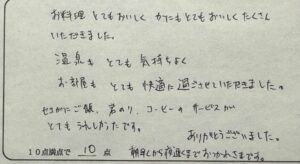 お料理 とてもおいしく かにもとてもおいしくたくさん
いただきました。
温泉も とても 気持ちよく
お部屋も とても 快適に過ごさせていただきました。
セコガニご飯、岩のり、コーヒーの サービスが
とても うれしかったです。
ありがとうございました。
10点満点で 10 点 朝早くから夜遅くまでおつかれさまです。